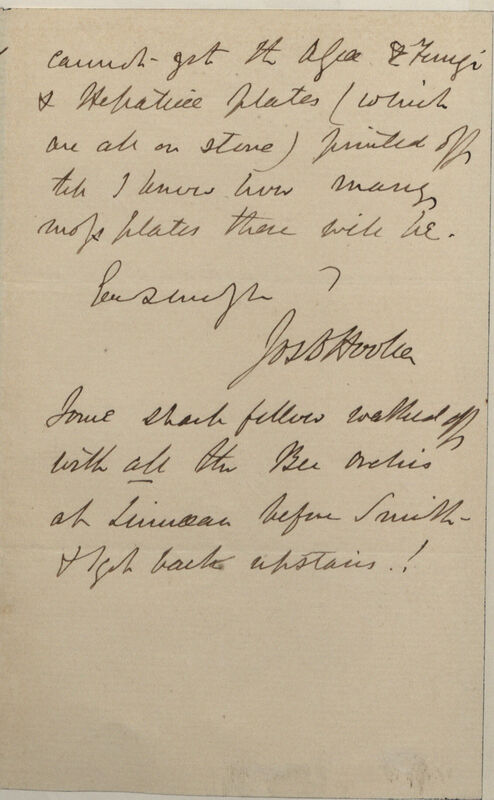 cannot get the Algae & Fungi
& Hepaticae plates (which
are all on stone) printed off
till I know how many
moss plates there will be.
Ever sincely
Jos D Hooker
Some shark fellow walked off
with all the Bee orchis
at Linnean before Smith
& I got back upstairs.!